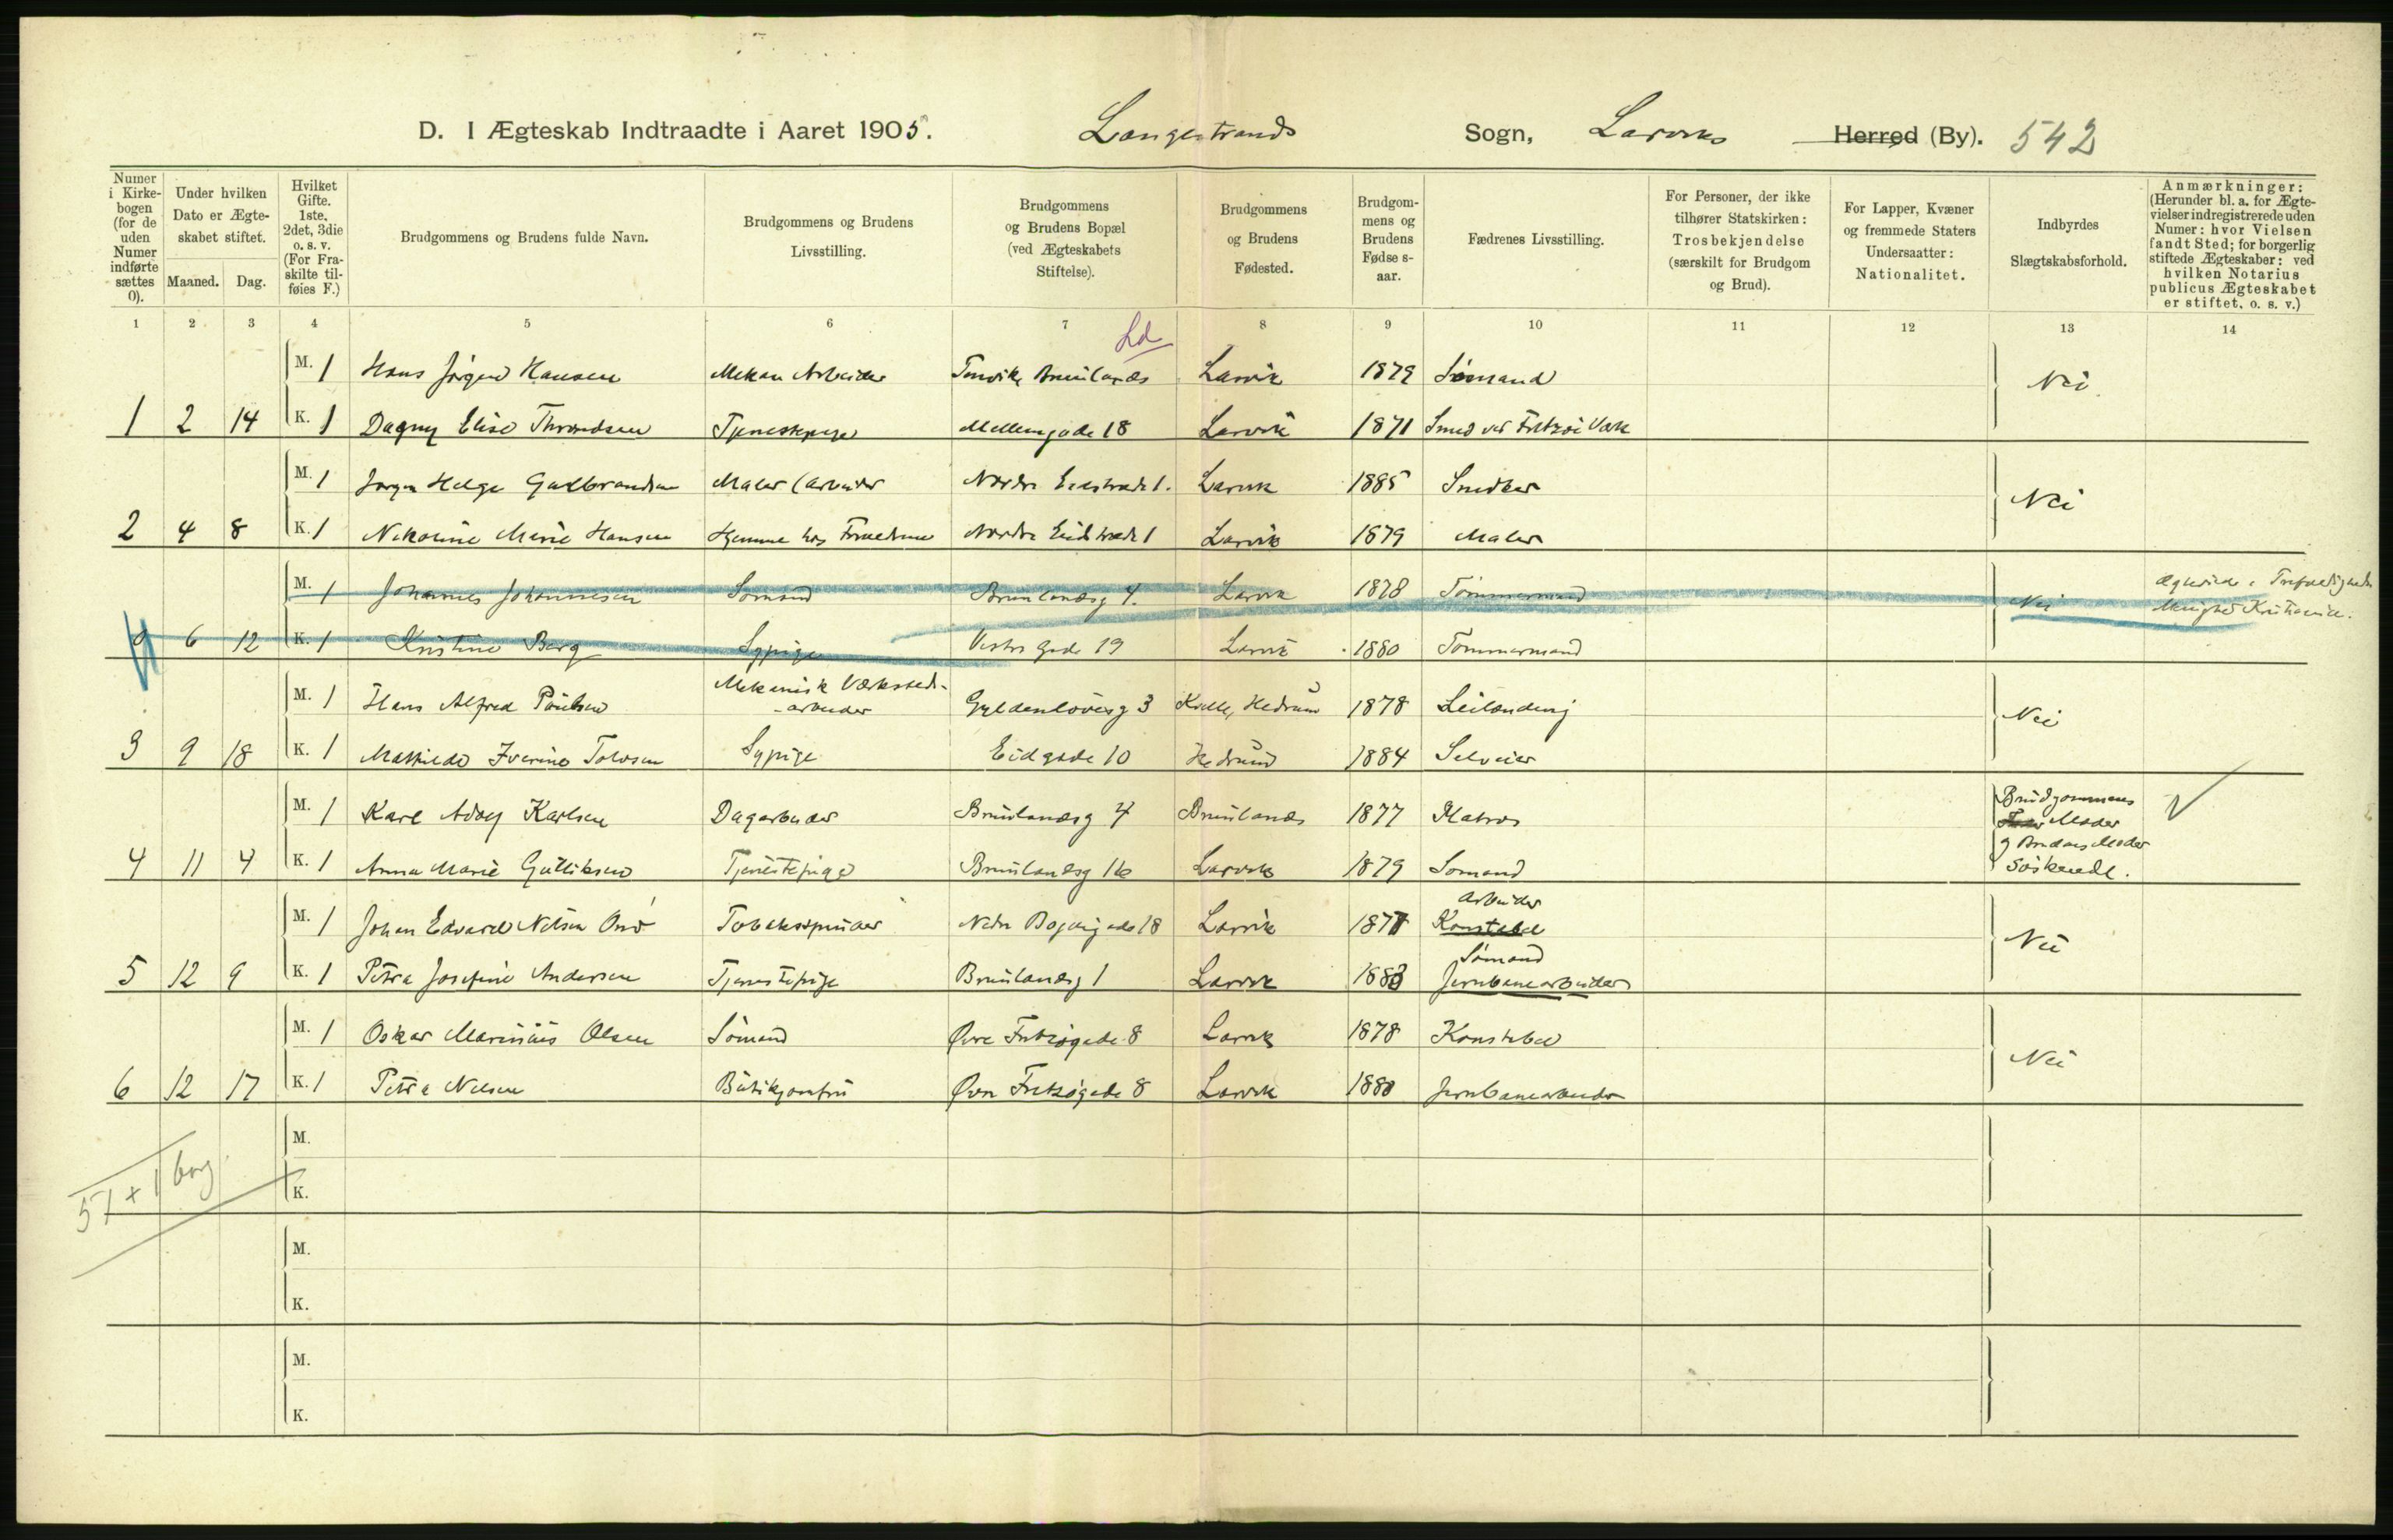 D. I Ægteskab Indtraadte i Aaret 1905. Langestrands Sogn, Larviks Herred (By). 542
Numer i Kirkebogen (for de uden Numer indførte sættes 0).
Under hvilken Dato er Ægteskabet stiftet.
Maaned. Dag.
Hvilket Gifte. 1ste, 2det, 3die o. s. v. (For Fraskilte tilføies F.)
Brudgommens og Brudens fulde Navn.
Brudgommens og Brudens Livsstilling.
Brudgommens og Brudens Bopæl (ved Ægteskabets Stiftelse).
Brudgommens og Brudens Fødested.
Brudgommens og Brudens Fødse s-aar.
Fædrenes Livsstilling.
For Personer, der ikke tilhører Statskirken: Trosbekjendelse (særskilt for Brudgom og Brud).
For Lapper, Kvæner og fremmede Staters Undersaatter: Nationalitet.
Indbyrdes Slægtskabsforhold.
Anmærkninger: (Herunder bl. a. for Ægtevielser indregistrerede uden Numer: hvor Vielsen fandt Sted; for borgerlig stiftede Ægteskaber: ved hvilken Notarius publicus Ægteskabet er stiftet, o. s. v.)
1 2 3 4 5 6 7 8 9 10 11 12 13 14
Ld
M. 1 Hans Jörgen Hansen Mekan Arbeider Brunlanæs Larvik 1879 Sömand Nei
1 2 14 K. 1 Dagny Elise Throndsen Tjenestepige Mellemgade 18 Larvik 1871 Smed ved Fritzöe Værk
M. 1 Jørgen Helge Gulbrandsen Maler (arbeider Nordre Eidstræde 1. Larvik 1885 Snedker Nei
2 4 8 K. 1 Nikoline Marie Hansen Hjemme hos Forældrene Nordre Eidstræde 1 Larvik 1879 Maler
M. 1 Johannes Johannesen Sømand Brunlanæsg 4. Larvik 1878 Tömmermand Nei Ægteviede i Trefoldigheds Menighed Kristiania.
0 6 12 K. 1 Kristine Berg Sypige Vestre Gade 19 Larvik 1880 Tömmermand
M. 1 Hans Alfred Paulsen Mekanisk Værksteds-
arbeider Gyldenlövesg 3 Kvelle, Hedrum 1878 Leilænding Nei
3 9 18 K. 1 Mathilde Iverine Tolvsen Sypige Eidgade 10 Hedrum 1884 Selveier
M. 1 Karl Adolf Karlsen Dagarbeider Brunlanæsg 4 Brunlanæs 1877 Matros Brudgommens
Moder
4 11 4 K. 1 Anna Marie Gulliksen Tjenestepige Brunlanæsg 16 Larvik 1879 Sömand og Brudens Moder
Söskende.
M. 1 Johan Edvard Nilsen Tobakspinder Nedre Bøgeigade 18 Larvik 1877 Arbeider
Konstabel Nei
5 12 9 K. 1 Petra Josefine Andersen Tjenestepige Brunlanæsg 1 Larvik 1883 Sömand
Jernbanearbeider
M. 1 Oskar Marinius Olsen Sömand Øvre Fritzögade 8 Larvik 1878 Konstabel Nei
6 12 17 K. 1 Petra Nilsen Butikjomfru Øvre Fritzögade 8 Larvik 1880 Jernbanearbeider
M.
K.
5 + 1 borg
M.
K.
M.
K.